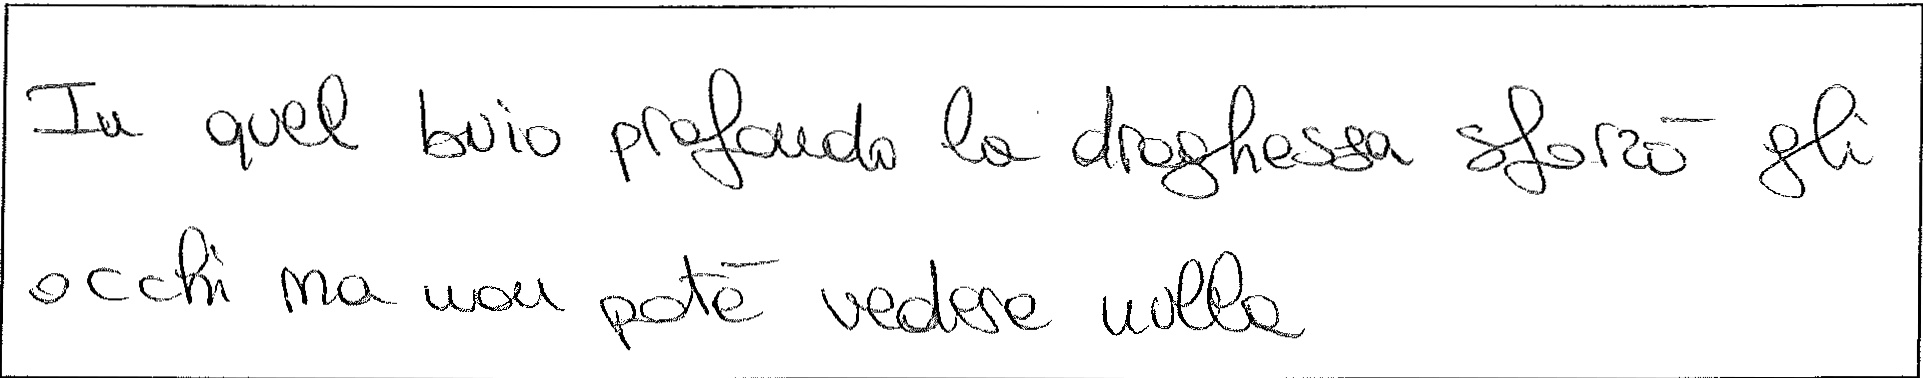 In quel buio profondo la draghessa sforzò gli
occhi ma non potè vedere nulla